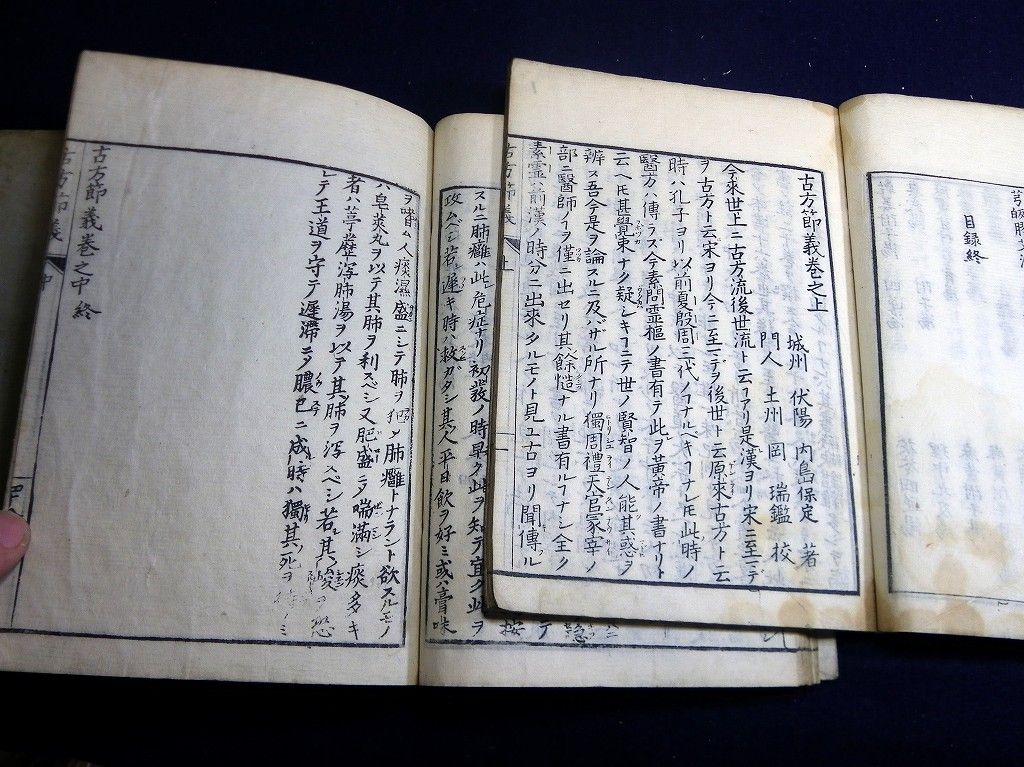 目録終
古方節義巻之上
城州 伏陽 内島保定 著
門人 土州 岡 瑞鑑 校
今來世上ニ古方流後世流ト云フアリ是漢ヨリ宋ニ至ーデ
ヲ古方ト云宋ヨリ今ニ至ーデヲ後世ト云原來古方ト云
時ハ孔子ヨリ以前夏殷周三代ノフナルベキフナレ𪜈此時ノ
醫方ハ傳ラズ今素問霊樞ノ書有テ此ヲ黄帝ノ書ナリト
云ヘ𪜈甚覺束ナク疑シキフニテ世ノ賢智ノ人能其惑ヲ
辨ス吾今是ヲ論スルニ及バザル所ナリ獨周禮天官冢宰ノ
部ニ醫師ノフヲ僅ニ出セリ其餘慥ナル書有ルフナシ全ク
素霊ハ前漢ノ時分ニ出來タルモノト見ユ古ヨリ聞傳ル
古方節義 上
スルニ肺癰ハ此危症ナリ初發ノ時早ク此ヲ知テ宜ク此ヲ
攻ムベシ若遅キ時ハ救ガタシ其人平日飲ヲ好ミ或ハ膏味
ヲ嗜ム人痰濕盛ニシテ肺ヲ犯シ肺癰トナラント欲スルモノ
ハ皁莢丸ヲ以テ其肺ヲ利スベシ又肥盛ニシテ喘滿シ痰多キ
者ハ葶藶瀉肺湯ヲ以テ其肺ヲ瀉スベシ若其
レテ王道ヲ守テ遅滞シテ膿已ニ成時ハ獨其死ヲ
古方節義巻之中 終
古方節義 中